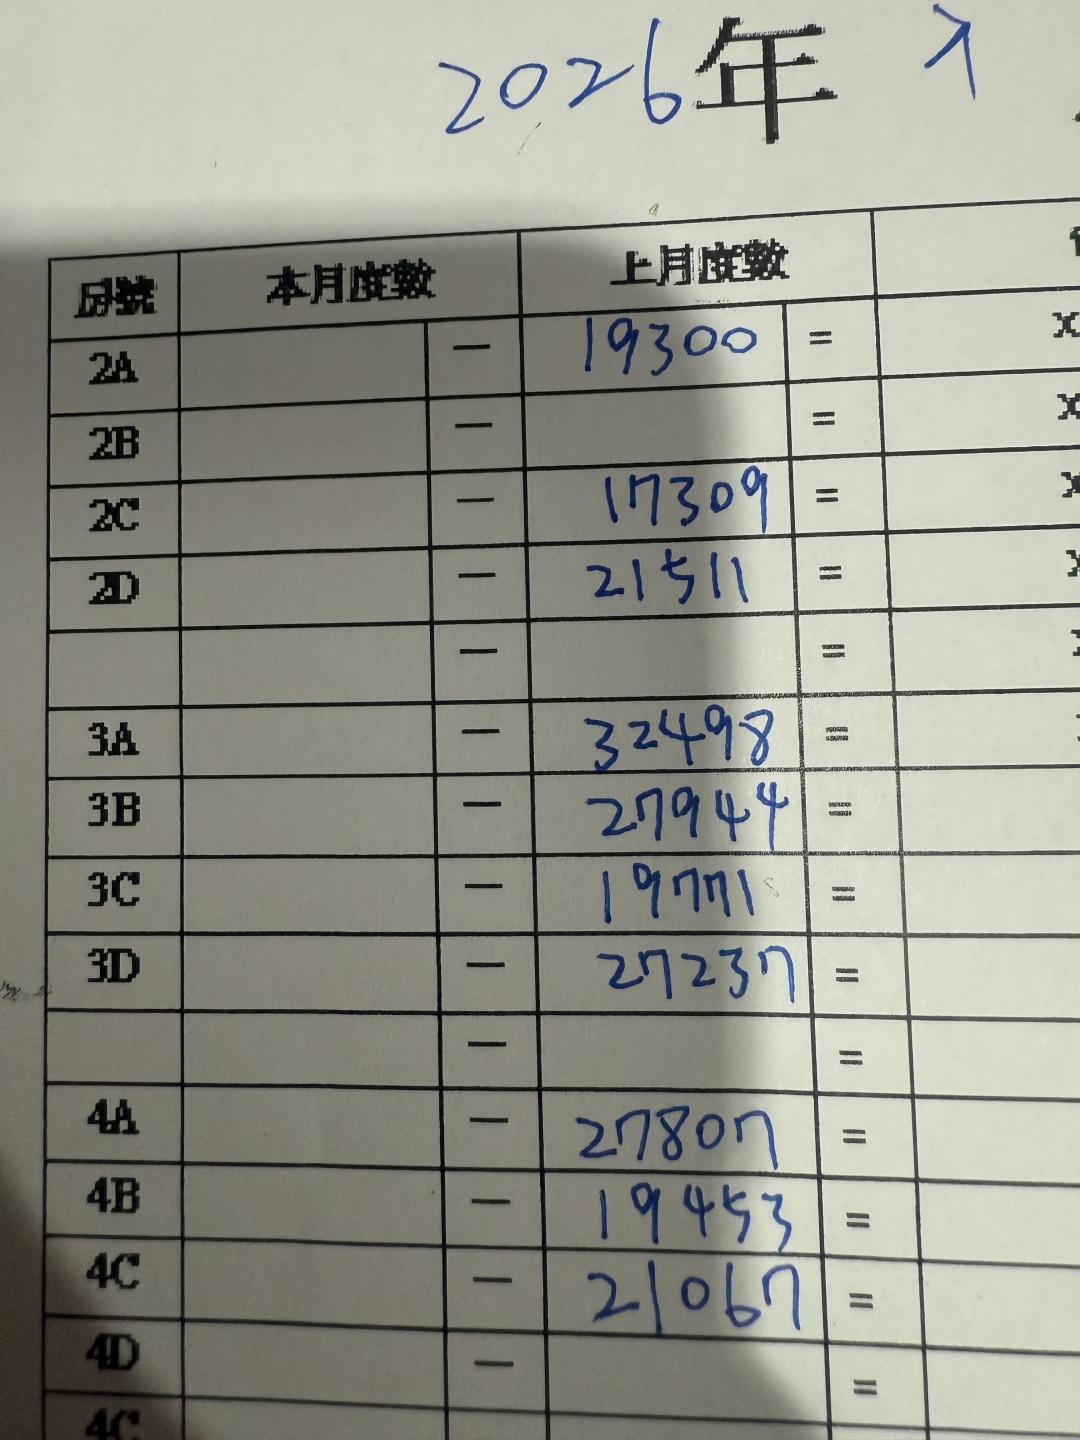 2026年
房號 本月度數 上月度數
2A — 19300 = X
2B — = X
2C — 17309 = X
2D — 21511 = X
— =
3A — 32498 =
3B — 27944 =
3C — 19771 =
3D — 27237 =
— =
4A — 27807 =
4B — 19453 =
4C — 21067 =
4D — =
4C